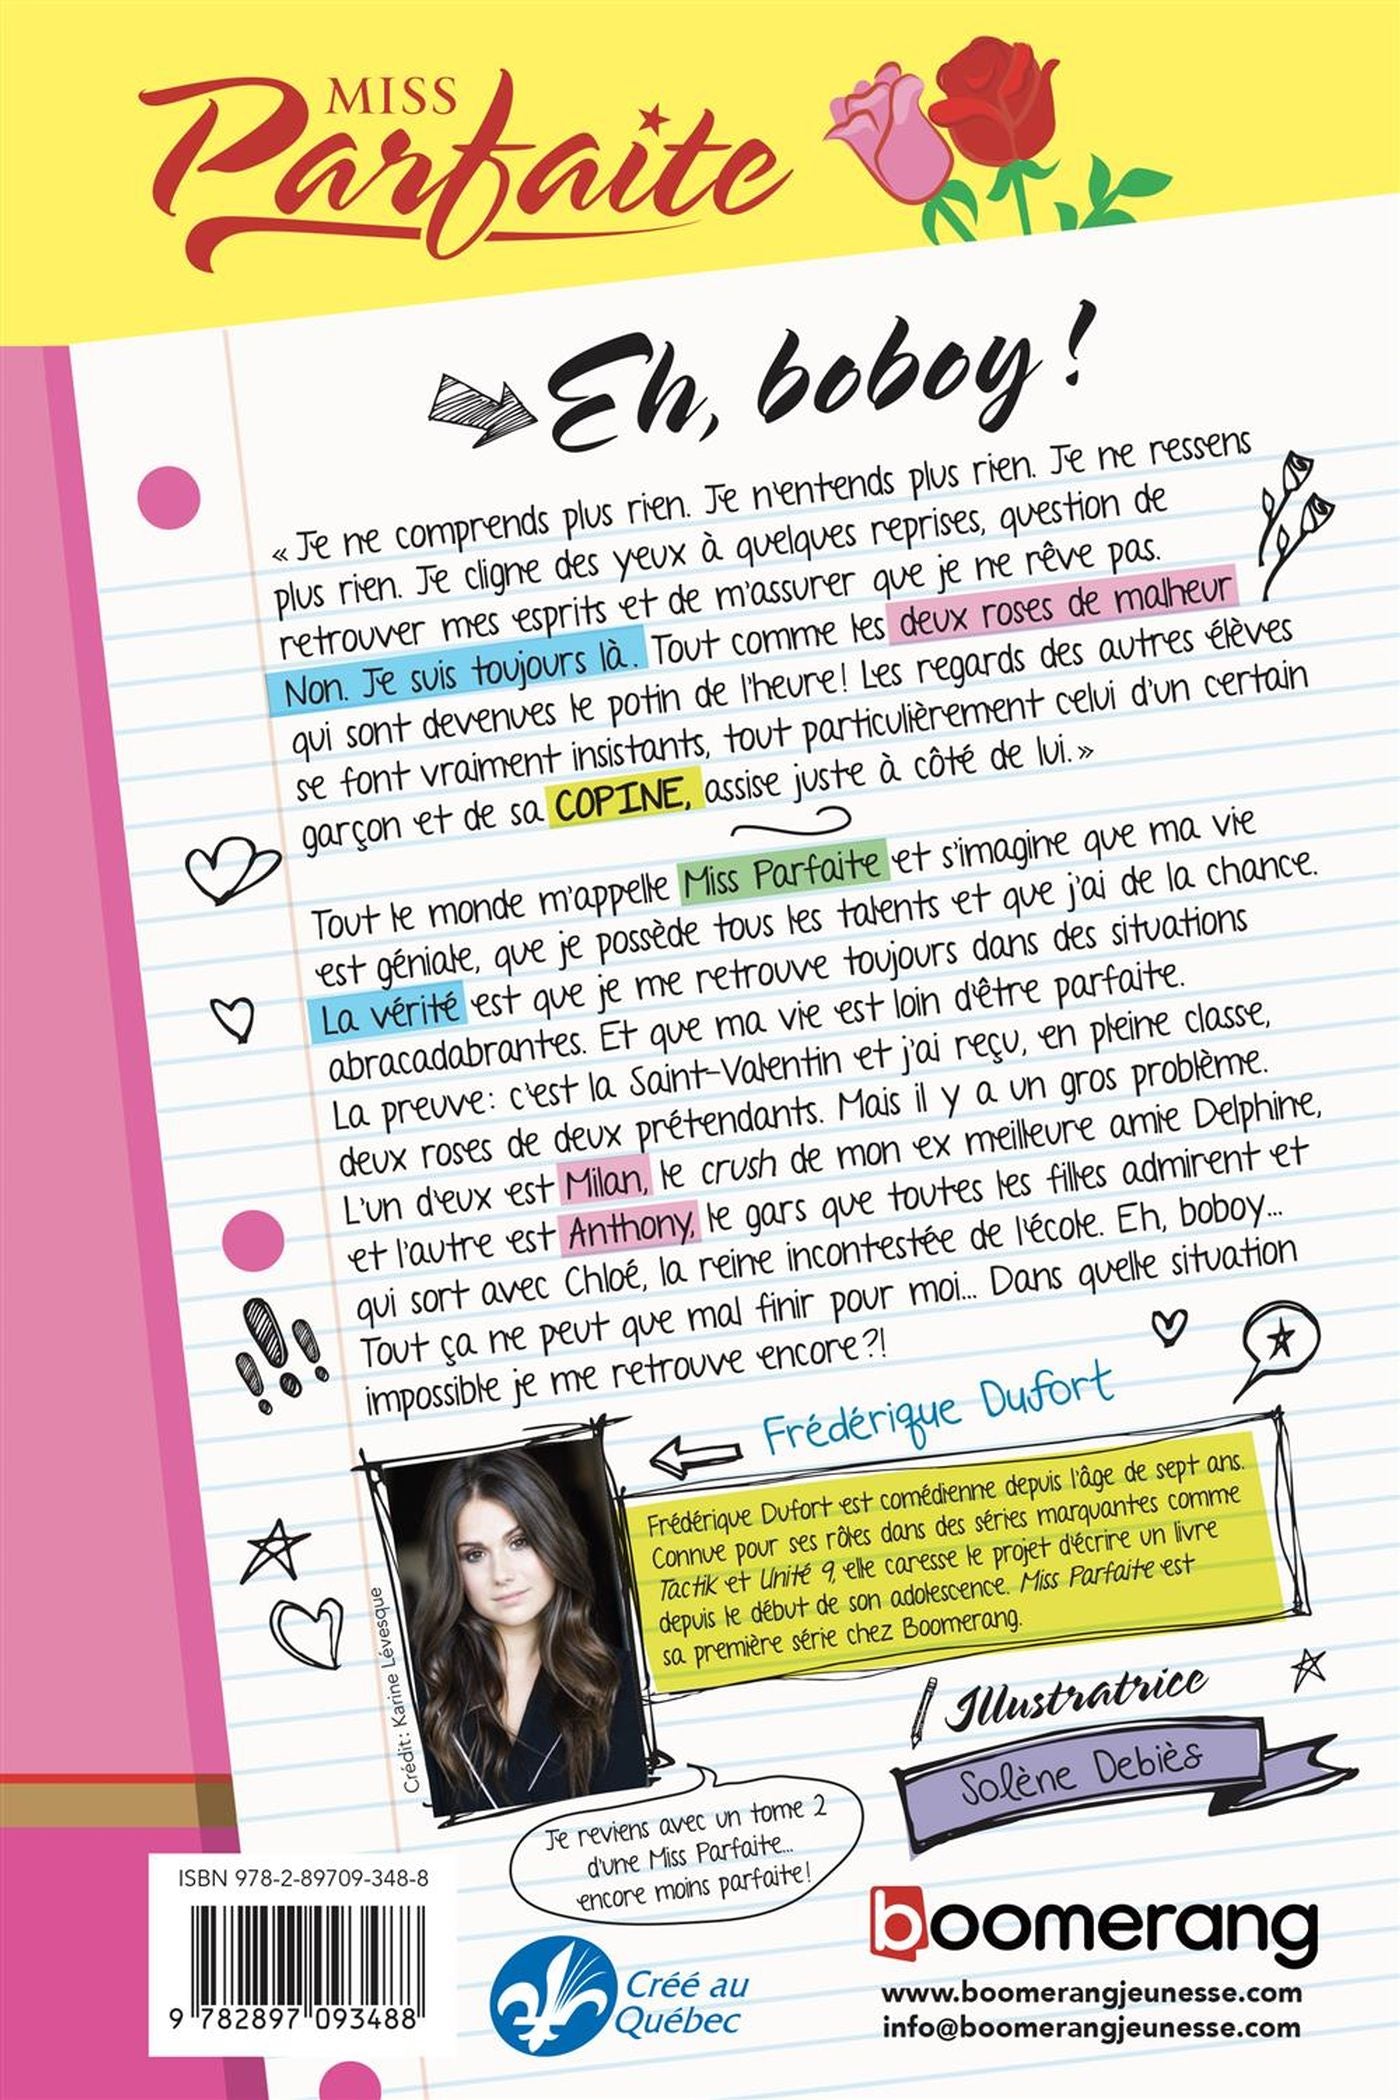 MISS
Parfaite
Eh, boboy !
« Je ne comprends plus rien. Je n'entends plus rien. Je ne ressens
plus rien. Je cligne des yeux à quelques reprises, question de
retrouver mes esprits et de m'assurer que je ne rêve pas.
Non. Je suis toujours là. Tout comme les deux roses de malheur
qui sont devenues le potin de l'heure! Les regards des autres élèves
se font vraiment insistants, tout particulièrement celui d'un certain
garçon et de sa COPINE, assise juste à côté de lui. »
Tout le monde m'appelle Miss Parfaite et s'imagine que ma vie
est géniale, que je possède tous les talents et que j'ai de la chance.
La vérité est que je me retrouve toujours dans des situations
abracadabrantes. Et que ma vie est loin d'être parfaite.
La preuve: c'est la Saint-Valentin et j'ai reçu, en pleine classe,
deux roses de deux prétendants. Mais il y a un gros problème.
L'un d'eux est Milan, le crush de mon ex meilleure amie Delphine,
et l'autre est Anthony, le gars que toutes les filles admirent et
qui sort avec Chloé, la reine incontestée de l'école. Eh, boboy...
Tout ça ne peut que mal finir pour moi... Dans quelle situation
impossible je me retrouve encore?!
Frédérique Dufort
Frédérique Dufort est comédienne depuis l'âge de sept ans.
Connue pour ses rôles dans des séries marquantes comme
Tactik et Unité 9, elle caresse le projet d'écrire un livre
depuis le début de son adolescence. Miss Parfaite est
sa première série chez Boomerang.
Crédit : Karine Lévesque
Illustratrice
Solène Debiès
Je reviens avec un tome 2
d'une Miss Parfaite...
encore moins parfaite!
ISBN 978-2-89709-348-8
9 782897 093488
Créé au
Québec
boomerang
www.boomerangjeunesse.com
info@boomerangjeunesse.com